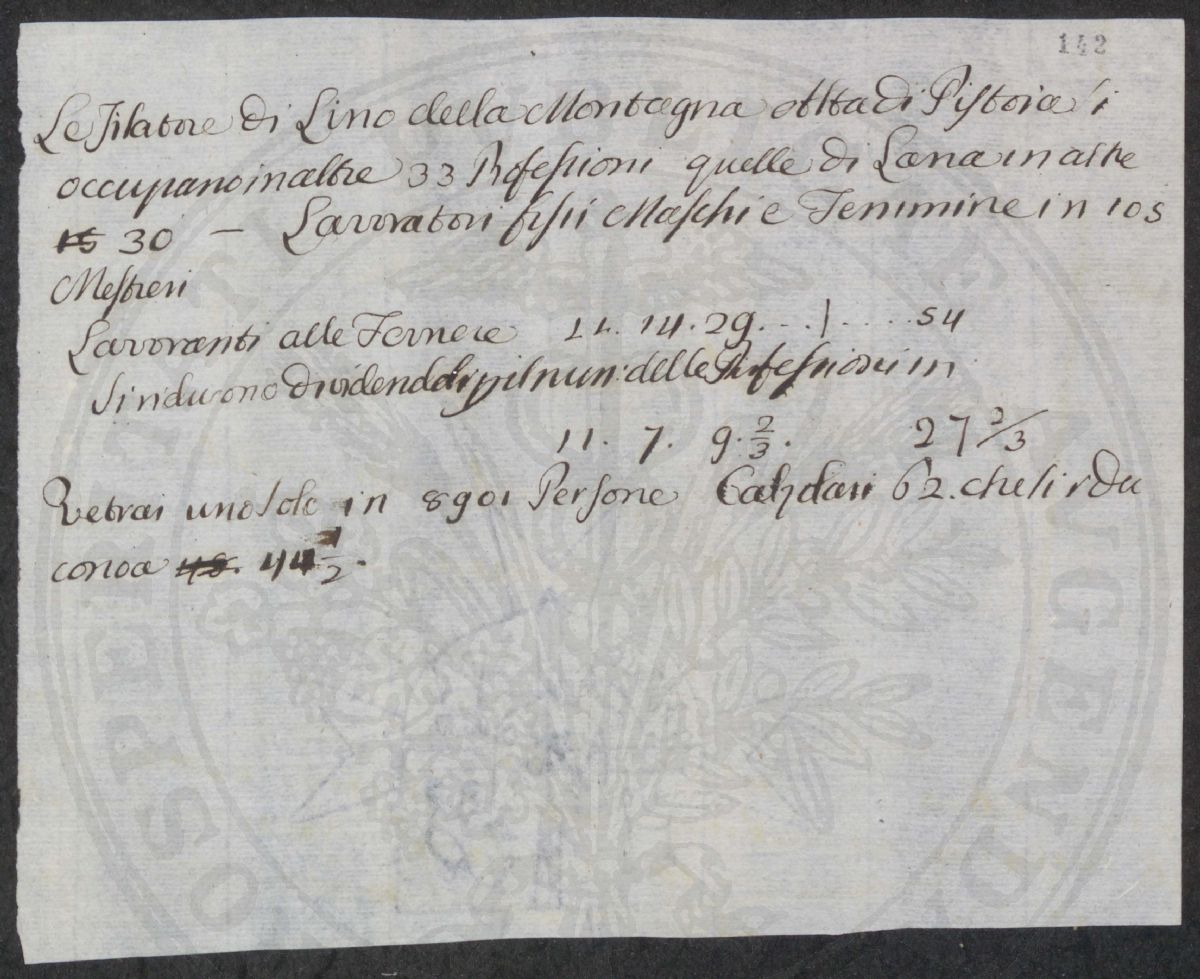 142
Le Filatore di Lino della Montagna alta di Pistoia si
occupano in altre 33 Professioni quelle di Lana in altre
15 30 — Lavoratori fissi Maschi e Femmine in 105
Mestieri
Lavoranti alle Fornere 11. 14. 29. . . 1 . . . . 54
Si riducono dividendoli pel num: delle Professioni in
11. 7. 9. 2/3. 27 2/3
Vetrai uno solo in 8901 Persone Calzolari 62. che si ridu
cono a 44 1/2.